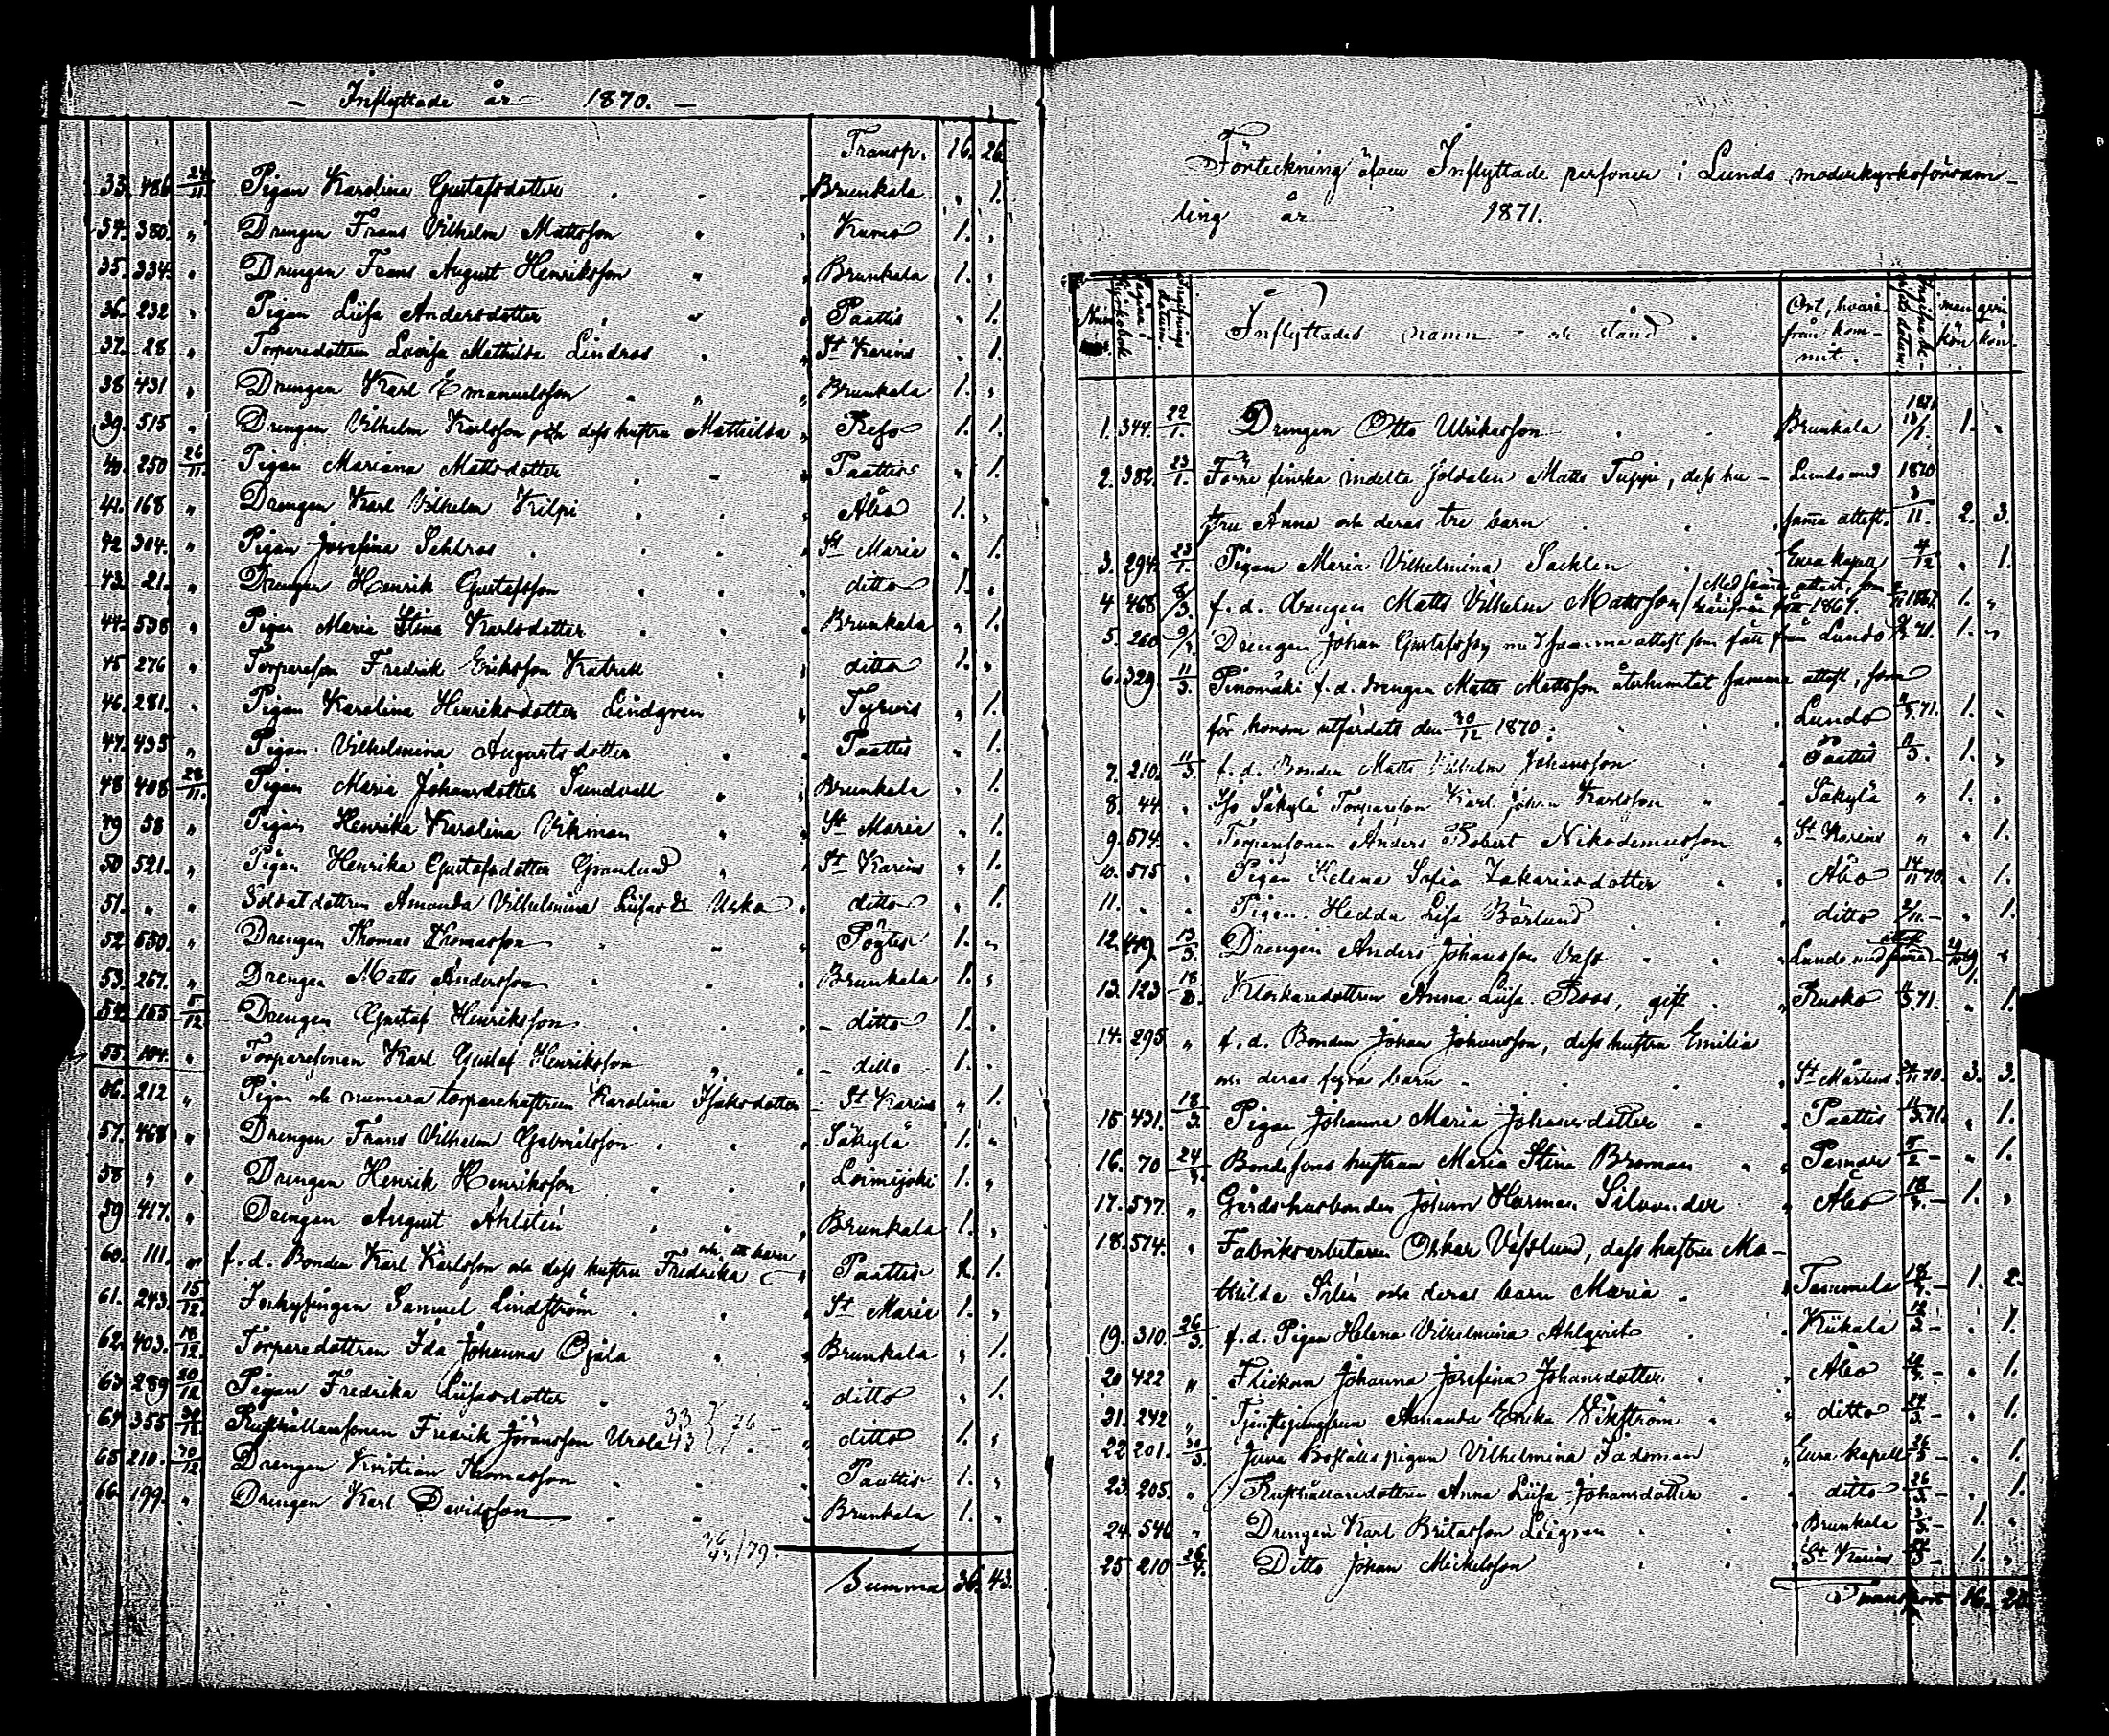 — Inflyttade år 1870. —
Transp. 16. 26.
33. 486 24/11. Pigan Karolina Gustafsdotter Brunkala „ 1.
34. 380. „ Drengen Frans Vilhelm Mattsson Kumo 1. „
35. 334. „ Drengen Frans August Henriksson Brunkala 1. „
36. 232 „ Pigan Liisa Andersdotter Paattis „ 1.
37. 28 „ Torparedottren Lovisa Mathilda Lindros St Karins „ 1.
38 431 „ Drengen Karl Emanuelsson Brunkala 1. „
39. 515 „ Drengen Vilhelm Karlsson och dess hustru Mathilda Reso 1. 1.
40. 250 26/11. Pigan Mariana Mattsdotter Paattis „ 1.
41. 168 „ Drengen Karl Vilhelm Kilpi Åbo 1. „
42 304. „ Pigan Josefina Sehlros St Marie „ 1.
43. 21. „ Drengen Henrik Gustafsson ditto 1. „
44. 538 „ Pigan Maria Stina Karlsdotter Brunkala „ 1.
45 276 „ Torpareson Fredrik Eriksson Katrill ditto 1. „
46. 281. „ Pigan Karolina Henriksdotter Lindgren Tyrvis „ 1.
47. 435 „ Pigan Vilhelmina Augustsdotter Paattis „ 1.
48 408 28/11. Pigan Maria Johansdotter Sundvall Brunkala „ 1.
49 58 „ Pigan Henrika Karolina Vikman St Marie „ 1.
50 521. „ Pigan Henrika Gustafsdotter Granlund St Karins „ 1.
51. „ „ Soldatdottren Amanda Vilhelmina Liisasdr Usko ditto „ 1.
52 550. „ Drengen Thomas Thomasson Pöytis 1. „
53. 267. „ Drengen Matts Andersson Brunkala 1. „
54. 155 5/12 Drengen Gustaf Henriksson ditto 1. „
55. 104. „ Torparesonen Karl Gustaf Henriksson ditto 1. „
56. 212 „ Pigan och numera torparehustrun Karolina Isaksdotter St Karins „ 1.
57. 468 „ Drengen Frans Vilhelm Gabrielsson Säkylä 1. „
58 „ „ Drengen Henrik Henriksson Loimijoki 1. „
59 417. „ Drengen August Ahlstén Brunkala 1. „
och ett barn
60. 111. „ f. d. Bonden Karl Karlsson och dess hustru Fredrika Paattis 2. 1.
61. 243. 15/12. Inhysingen Samuel Lindström St Marie 1. „
62. 403. 18/12. Torparedottren Ida Johanna Ojala Brunkala „ 1.
63 289 20/12 Pigan Fredrika Liisasdotter ditto „ 1.
64 355 30/12. Rusthållaresonen Fredrik Jöransson Ursla ditto 1. „
65 210. 30/12 Drengen Kristian Thomasson Paattis 1. „
66. 199. „ Drengen Karl Davidsson Brunkala 1. „
Summa 36. 43.
Förteckning öfver Inflyttade personer i Lundo moderkyrkoförsam-
ling år 1871.
Inflyttades namn och stånd. Ort, hvarifrån kommit. mankön qvinkön.
1. 344. 22/1. Drengen Otto Ulriksson Brunkala 1871 13/1. 1. „
2. 382. 23/1. Förre finska indelta soldaten Matts Tuppi, dess hu- Lundo med 1870
stru Anna och deras tre barn samma attest. 3/11. 2. 3.
3. 294. 23/1. Pigan Maria Vilhelmina Sacklen Eura kapell 4/12 „ 1.
4 468 8/3. f. d. drengen Matts Vilhelm Mattsson / Med samma attest, som härifrån fått 1867. 1. „
5. 260 9/3. Drengen Johan Gustafsson med samma attest som fått från Lundo 71. 1. „
6. 329 11/3. Pinomäki f. d. drengen Matts Mattsson återhemtat samma attest, som
för honom utfärdats den 30/12 1870. Lundo 71. 1. „
7. 210. 11/3. f. d. Bonden Matts Vilhelm Johansson Paattis 11/3. 1. „
8. 44. „ Iso Säkylä Torpareson Karl Johan Karlsson Säkylä „ 1. „
9. 574. „ Torparesonen Anders Robert Nikodemusson St Karins „ „ 1.
10. 575 „ Pigan Helena Sofia Zakariasdotter Åbo 14/11 70 „ 1.
11. „ „ Pigan Hedda Lisa Bärlund ditto 2/11. – „ 1.
12. 449. 13/3. Drengen Anders Johansson Vass Lundo med samma attest 1. „
13. 123 18/3. Klockaredottren Anna Liisa Roos, gift Rusko 71. „ 1.
14. 295 „ f. d. Bonden Johan Johansson, dess hustru Emilia
och deras fyra barn St Mårtens 70. 3. 3.
15 431. 18/3. Pigan Johanna Maria Johansdotter Paattis 71. „ 1.
16. 70 24/3. Bondesons hustrun Maria Stina Broman Pemar 5/2 – „ 1.
17. 577. „ Gårdshusbonden Johan Herman Silvander Åbo – 1. „
18. 574. „ Fabriksarbetaren Oskar Vässlund, dess hustru Ma-
thilda Silén och deras barn Maria. Tammela – 1. 2.
19. 310. 26/3. f. d. Pigan Helena Vilhelmina Ahlqvist Kiikala – „ 1.
20 422 „ Flickan Johanna Josefina Johansdotter Åbo – „ 1.
21. 242 „ Tjenstejungfrun Amanda Erika Vikström ditto – „ 1.
22 201. 30/3. Juva Boställspigan Vilhelmina Fadsman Eura kapell 26/3 – „ 1.
23. 205. „ Rusthållaredottren Anna Liisa Johansdotter ditto 26/3 – „ 1.
24. 546 „ Drengen Karl Britasson Leegren Brunkala – 1. „
25 210 Ditto Johan Mickelsson St Karins – 1. „
Transport 16.